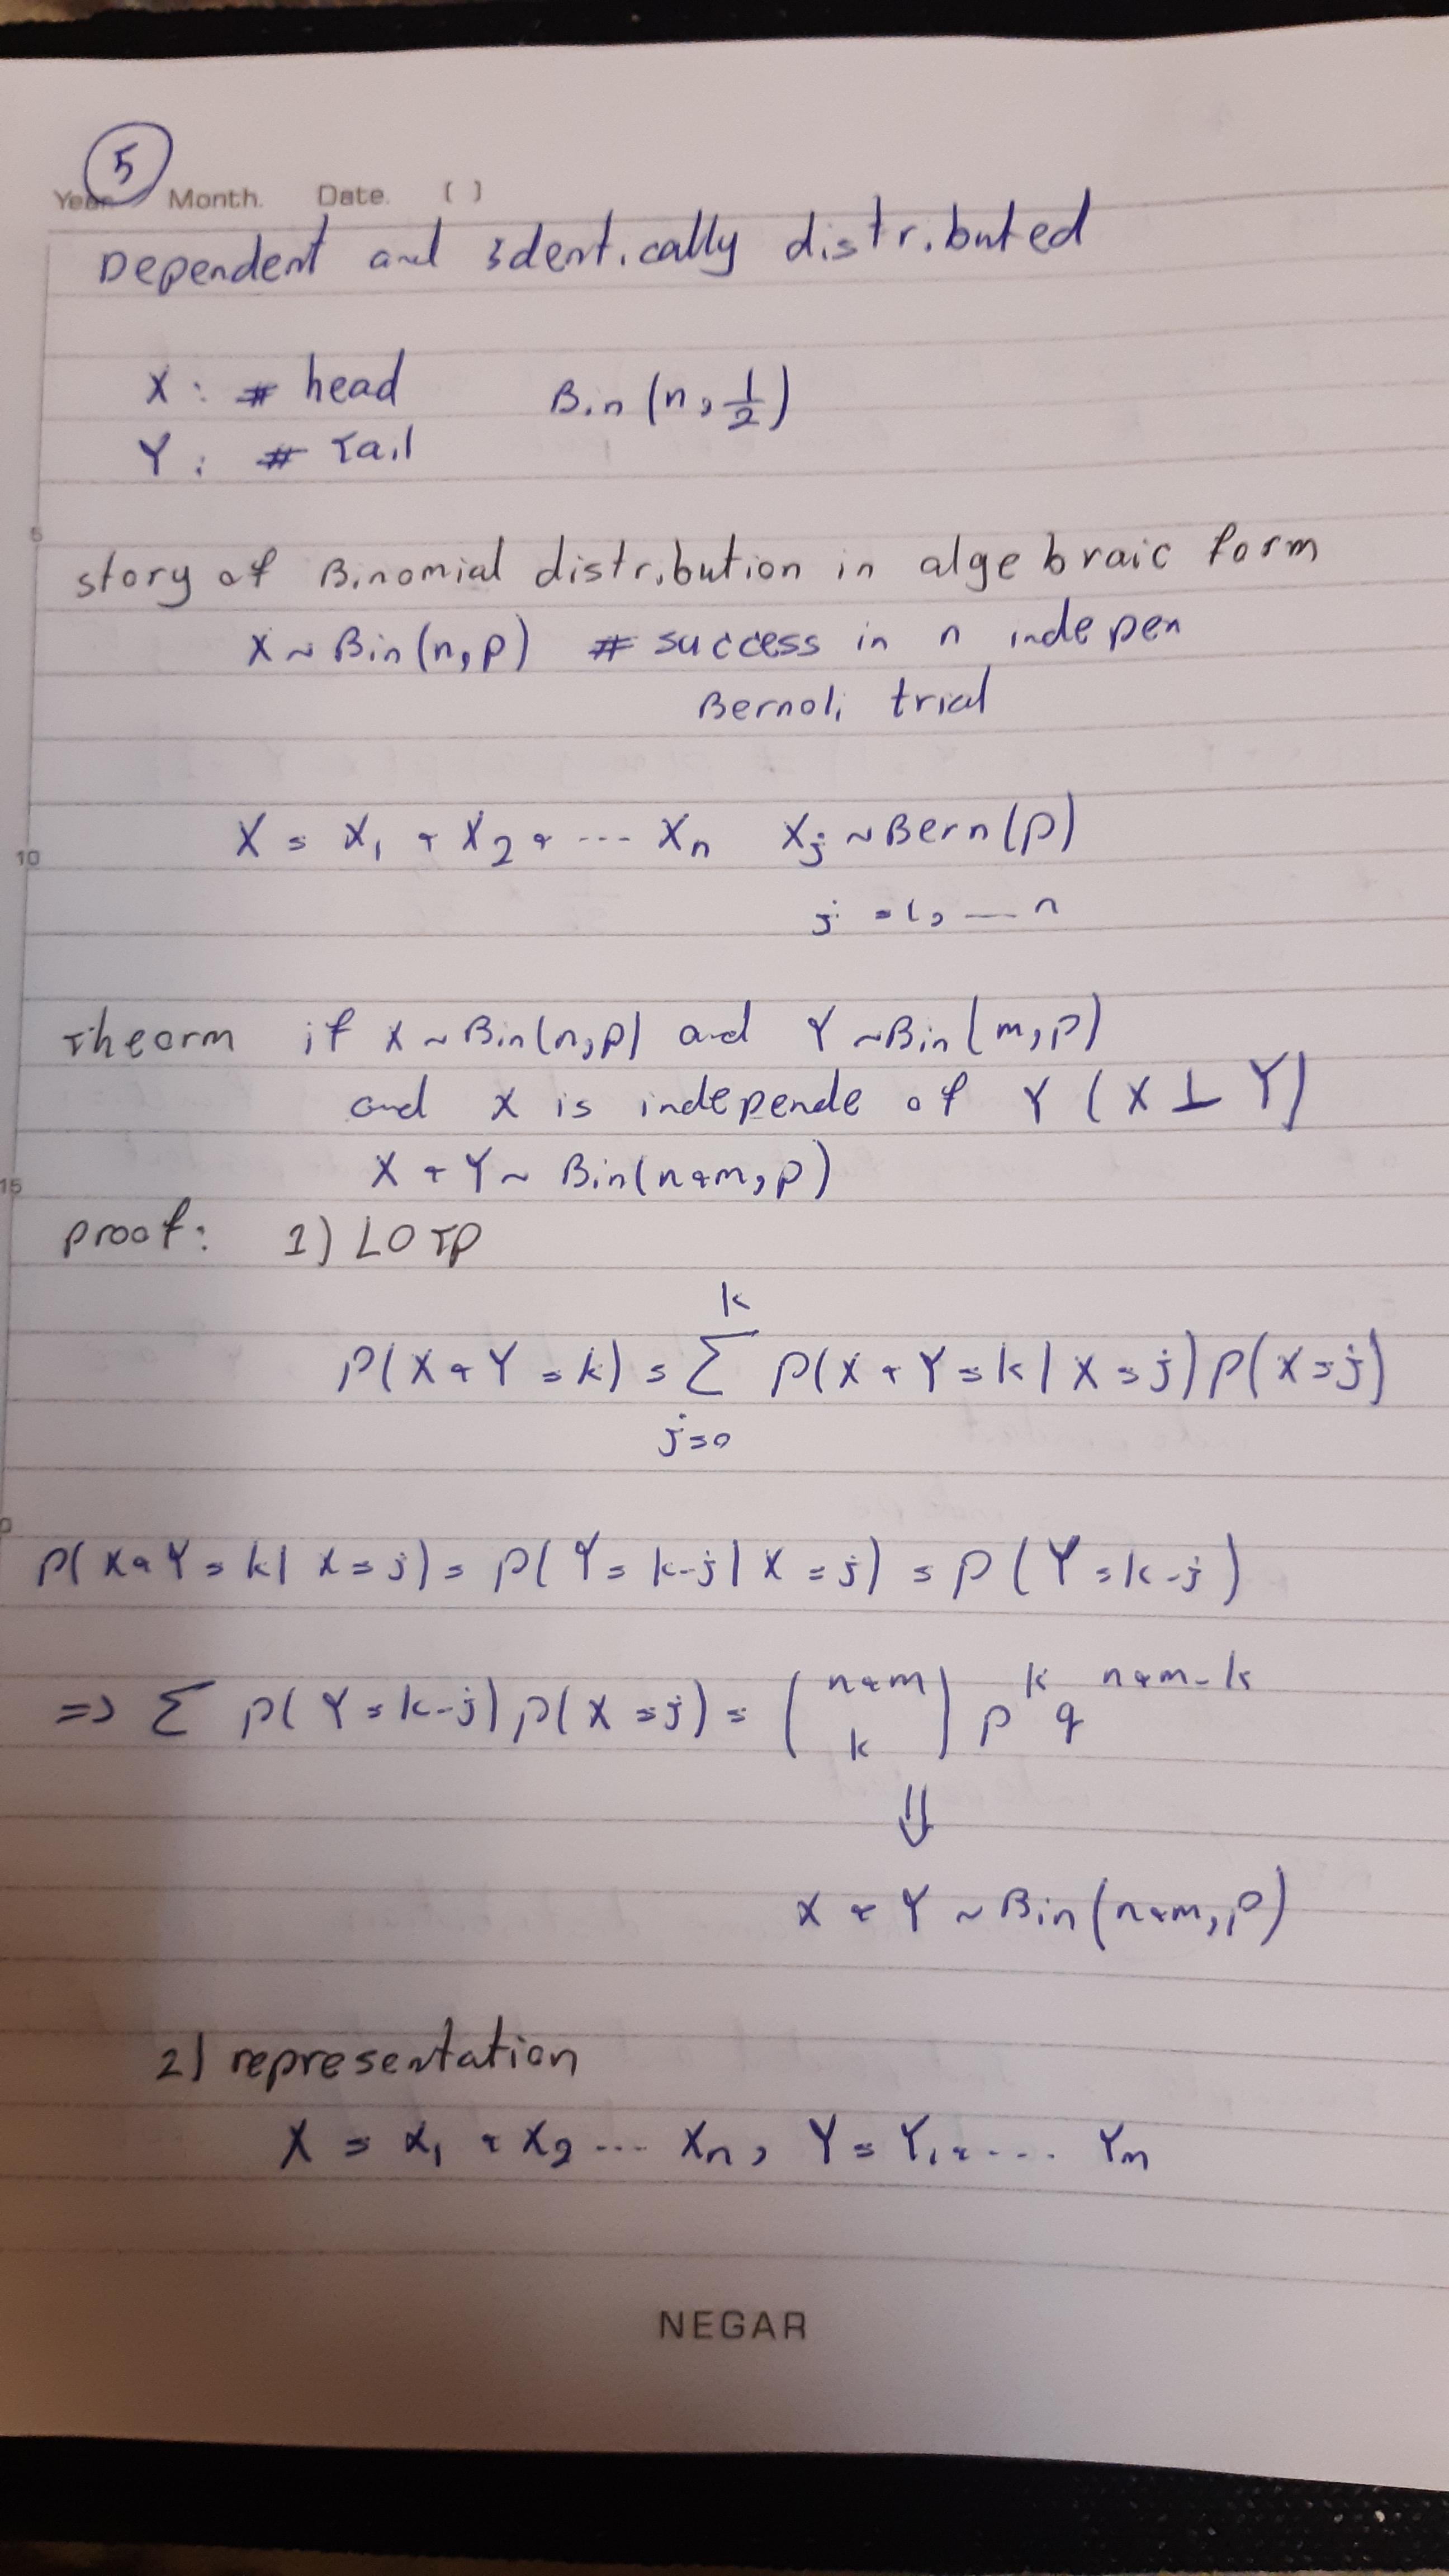 5
Year. Month. Date. ( )
Dependent and identically distributed
X : # head Bin (n, 1/2)
Y : # Tail
5
story of Binomial distribution in algebraic form
X ~ Bin(n,p) # success in n indepen
Bernoli trial
X = X₁ + X₂ + --- Xn Xj ~ Bern(p)
10
j = 1, — n
Theorm if X ~ Bin(n,p) and Y ~ Bin(m,p)
and X is independe of Y (X ⊥ Y)
X + Y ~ Bin(n+m,p)
15
proof: 1) LOTP
k
P(X+Y=k) = Σ P(X+Y=k | X=j) P(X=j)
j=0
0
P(X+Y=k | X=j) = P(Y=k-j | X=j) = P(Y=k-j)
=> Σ P(Y=k-j) P(X=j) = (n+m k) p^k q^n+m-k
⇓
X + Y ~ Bin(n+m, p)
2) representation
X = X₁ + X₂ --- Xn, Y = Y₁ + --- Ym
NEGAR